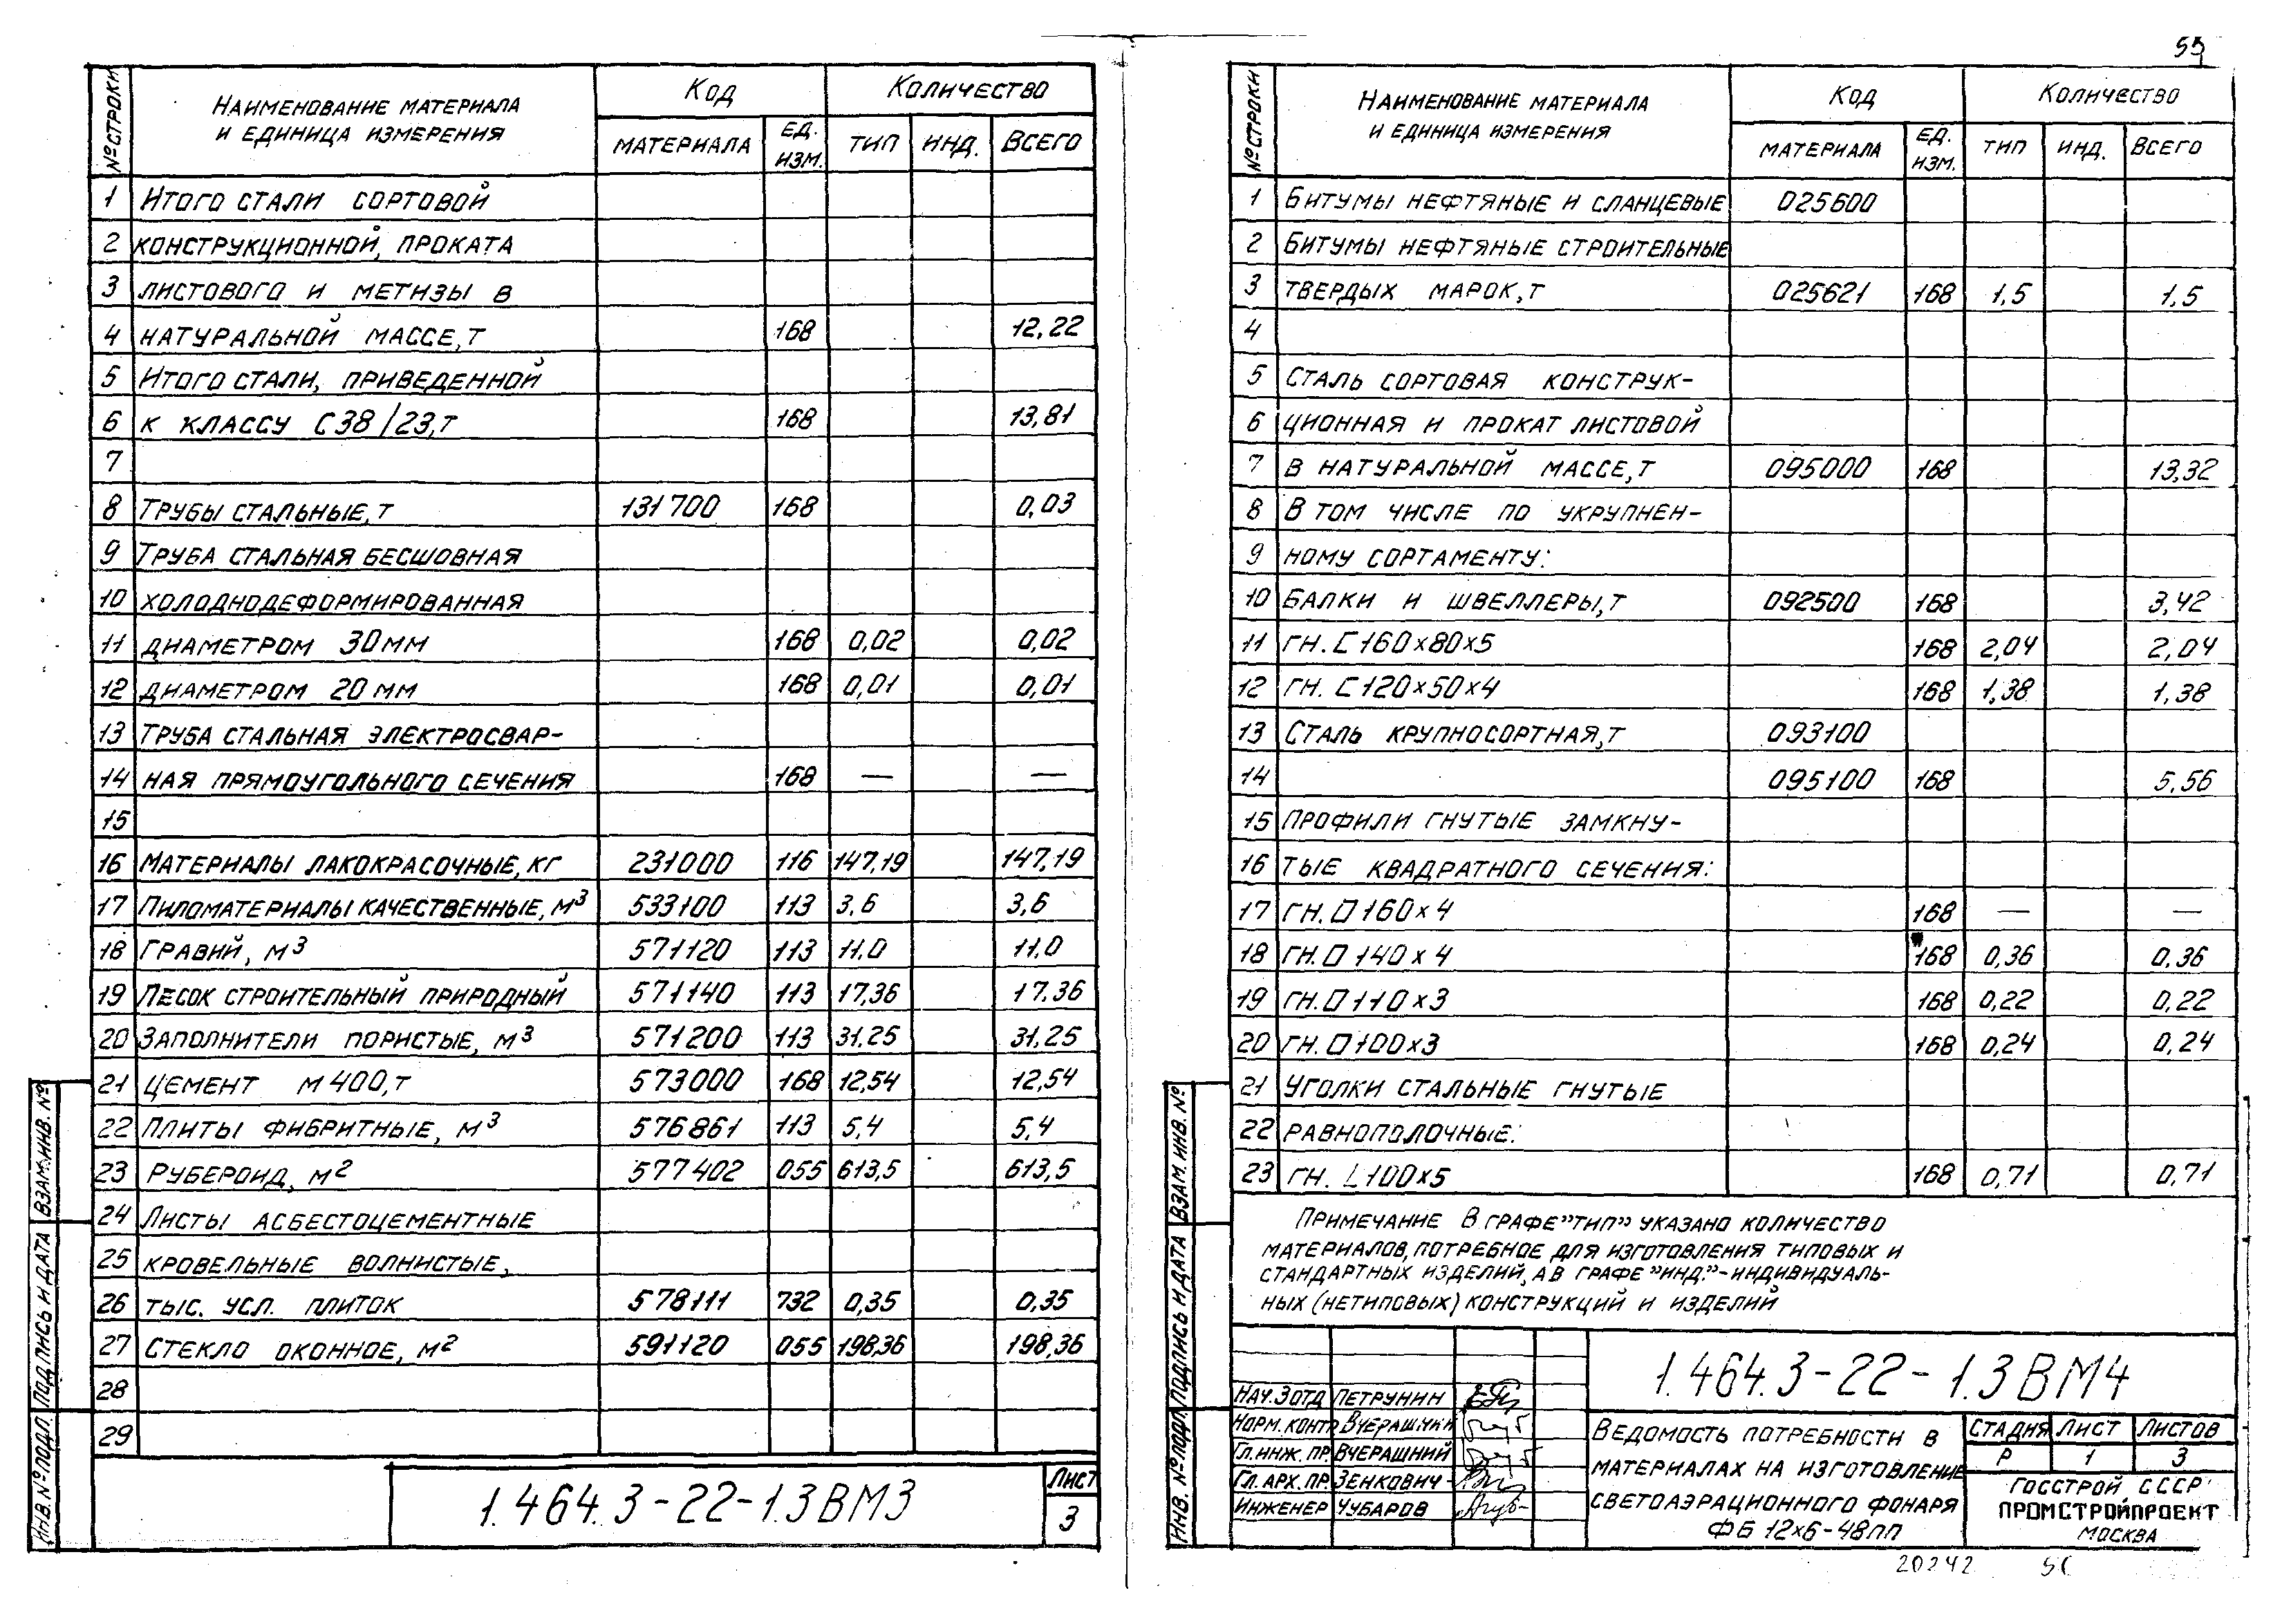 55
№ СТРОКИ | НАИМЕНОВАНИЕ МАТЕРИАЛА И ЕДИНИЦА ИЗМЕРЕНИЯ | КОД | КОЛИЧЕСТВО
МАТЕРИАЛА | ЕД. ИЗМ. | ТИП | ИНД. | ВСЕГО
1 ИТОГО СТАЛИ СОРТОВОЙ
2 КОНСТРУКЦИОННОЙ, ПРОКАТА
3 ЛИСТОВОГО И МЕТИЗЫ В
4 НАТУРАЛЬНОЙ МАССЕ, Т 168 12,22
5 ИТОГО СТАЛИ, ПРИВЕДЕННОЙ
6 К КЛАССУ С38/23, Т 168 13,81
7
8 ТРУБЫ СТАЛЬНЫЕ, Т 131700 168 0,03
9 ТРУБА СТАЛЬНАЯ БЕСШОВНАЯ
10 ХОЛОДНОДЕФОРМИРОВАННАЯ
11 ДИАМЕТРОМ 30 ММ 168 0,02 0,02
12 ДИАМЕТРОМ 20 ММ 168 0,01 0,01
13 ТРУБА СТАЛЬНАЯ ЭЛЕКТРОСВАР-
14 НАЯ ПРЯМОУГОЛЬНОГО СЕЧЕНИЯ 168 — —
15
16 МАТЕРИАЛЫ ЛАКОКРАСОЧНЫЕ, КГ 231000 116 147,19 147,19
17 ПИЛОМАТЕРИАЛЫ КАЧЕСТВЕННЫЕ, М³ 533100 113 3,6 3,6
18 ГРАВИЙ, М³ 571120 113 11,0 11,0
19 ПЕСОК СТРОИТЕЛЬНЫЙ ПРИРОДНЫЙ 571140 113 17,36 17,36
20 ЗАПОЛНИТЕЛИ ПОРИСТЫЕ, М³ 571200 113 31,25 31,25
21 ЦЕМЕНТ М400, Т 573000 168 12,54 12,54
22 ПЛИТЫ ФИБРИТНЫЕ, М³ 576861 113 5,4 5,4
23 РУБЕРОИД, М² 577402 055 613,5 613,5
24 ЛИСТЫ АСБЕСТОЦЕМЕНТНЫЕ
25 КРОВЕЛЬНЫЕ ВОЛНИСТЫЕ,
26 ТЫС. УСЛ. ПЛИТОК 578111 732 0,35 0,35
27 СТЕКЛО ОКОННОЕ, М² 591120 055 198,36 198,36
28
29
ИНВ. № ПОДЛ. ПОДПИСЬ И ДАТА ВЗАМ. ИНВ. №
1.464.3-22-1.3ВМ3
ЛИСТ
3
№ СТРОКИ | НАИМЕНОВАНИЕ МАТЕРИАЛА И ЕДИНИЦА ИЗМЕРЕНИЯ | КОД | КОЛИЧЕСТВО
МАТЕРИАЛА | ЕД. ИЗМ. | ТИП | ИНД. | ВСЕГО
1 БИТУМЫ НЕФТЯНЫЕ И СЛАНЦЕВЫЕ 025600
2 БИТУМЫ НЕФТЯНЫЕ СТРОИТЕЛЬНЫЕ
3 ТВЕРДЫХ МАРОК, Т 025621 168 1,5 1,5
4
5 СТАЛЬ СОРТОВАЯ КОНСТРУК-
6 ЦИОННАЯ И ПРОКАТ ЛИСТОВОЙ
7 В НАТУРАЛЬНОЙ МАССЕ, Т 095000 168 13,32
8 В ТОМ ЧИСЛЕ ПО УКРУПНЕН-
9 НОМУ СОРТАМЕНТУ:
10 БАЛКИ И ШВЕЛЛЕРЫ, Т 092500 168 3,42
11 ГН. [ 160×80×5 168 2,04 2,04
12 ГН. [ 120×50×4 168 1,38 1,38
13 СТАЛЬ КРУПНОСОРТНАЯ, Т 093100
14 095100 168 5,56
15 ПРОФИЛИ ГНУТЫЕ ЗАМКНУ-
16 ТЫЕ КВАДРАТНОГО СЕЧЕНИЯ:
17 ГН. □ 160×4 168 — —
18 ГН. □ 140×4 168 0,36 0,36
19 ГН. □ 110×3 168 0,22 0,22
20 ГН. □ 100×3 168 0,24 0,24
21 УГОЛКИ СТАЛЬНЫЕ ГНУТЫЕ
22 РАВНОПОЛОЧНЫЕ:
23 ГН. L 100×5 168 0,71 0,71
ПРИМЕЧАНИЕ В ГРАФЕ "ТИП" УКАЗАНО КОЛИЧЕСТВО
МАТЕРИАЛОВ, ПОТРЕБНОЕ ДЛЯ ИЗГОТОВЛЕНИЯ ТИПОВЫХ И
СТАНДАРТНЫХ ИЗДЕЛИЙ, А В ГРАФЕ "ИНД." - ИНДИВИДУАЛЬ-
НЫХ (НЕТИПОВЫХ) КОНСТРУКЦИЙ И ИЗДЕЛИЙ
ИНВ. № ПОДЛ. ПОДПИСЬ И ДАТА ВЗАМ. ИНВ. №
НАЧ. ЗОТД ПЕТРУНИН
НОРМ. КОНТР ВЧЕРАШНИЙ
ГЛ. ИНЖ. ПР. ВЧЕРАШНИЙ
ГЛ. АРХ. ПР. ЗЕНКОВИЧ
ИНЖЕНЕР ЧУБАРОВ
1.464.3-22-1.3ВМ4
ВЕДОМОСТЬ ПОТРЕБНОСТИ В
МАТЕРИАЛАХ НА ИЗГОТОВЛЕНИЕ
СВЕТОАЭРАЦИОННОГО ФОНАРЯ
ФБ 12×6-48ПП
СТАДИЯ ЛИСТ ЛИСТОВ
Р 1 3
ГОССТРОЙ СССР
ПРОМСТРОЙПРОЕКТ
МОСКВА
20242